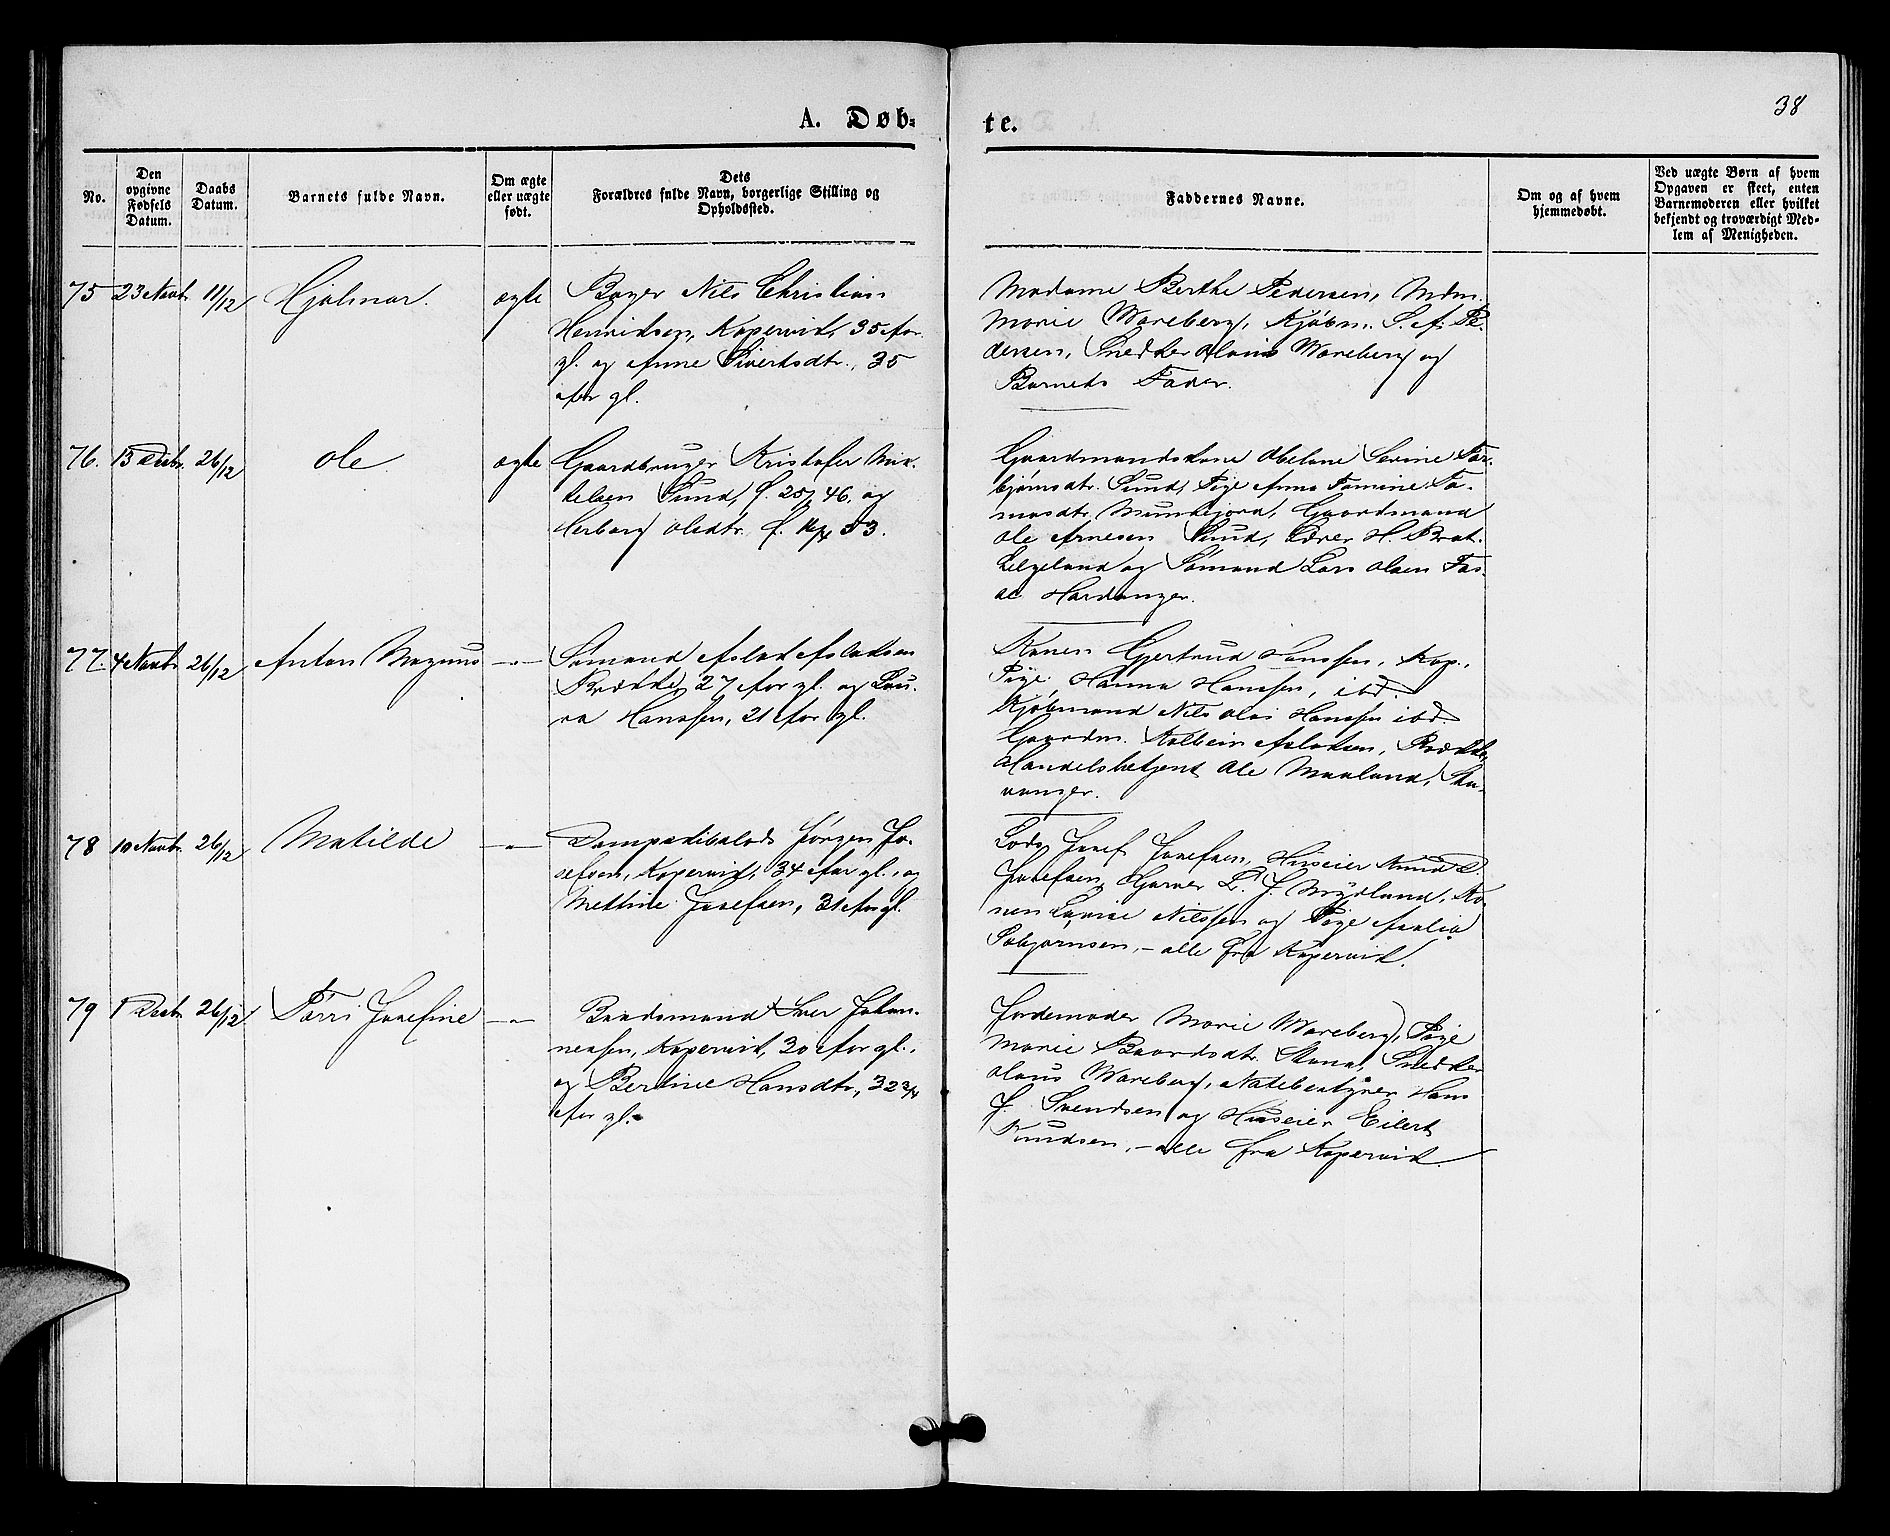 38
A. Døb-
te.
No.
Den opgivne Fødsels Datum.
Daabs Datum.
Barnets fulde Navn.
Om ægte eller uægte født.
Dets
Forældres fulde Navn, borgerlige Stilling og
Opholdssted.
Faddernes Navne.
Om og af hvem
hjemmedøbt.
Ved uægte Børn af hvem
Opgaven er skeet, enten
Barnemoderen eller hvilket
bekjendt og troværdigt Med-
lem af Menigheden.
75 23 Novbr 11/12 Hjalmar. ægte Bager Nils Christian
Henriksen, Kopervik, 35 før
gl. og Anne Sivertsdtr., 35
før gl.
Madame Berthe Pedersen, Mdm.
Marie Wareberg, Kjøbm. S. A. Pe-
dersen, Snedker Olaus Wareberg og
Barnets Fader.
76. 13 Decbr. 26/12 Ole ægte Gaardbruger Kristofer Mik-
kelsen Sund, f. 25/ 46. og
Herborg Olsdtr. f. 53.
Gaardmandskone Abelone Serine Tor-
bjørnsdtr. Sund, Pige Anna Tomine To-
masdtr. Munkejord, Gaardmand
Ole Arnesen Sund, Lærer H. Brat-
Helgeland og Sømand Lars Olsen
Hardanger.
77. 4 Novbr 26/12 Anton Magnus -"- Sømand Aslak Aslaksen
Brække, 27 før gl. og Lau-
ra Hanssen, 21 før gl.
Konen Gjertrud Hanssen, Kop.,
Pige Hanna Hanssen, ibd.
Kjøbmand Nils Olai Hanssen ibd.
Gaardm. Kolbein Aslaksen, Brække,
Handelsbetjent Ole Maaland, Sta-
vanger.
78 10 Novbr. 26/12 Matilde -"- Dampskibslods Jørgen Jo-
sefsen, Kopervik, 34 før gl., og
Mettine Josefsen, 31 før gl.
Lods Josef Josefsen, Huseier Knud
Josefsen, Garver L. J. Myhland, Ko-
nen Lovise Nilssen og Pige Amalia
Asbjørnsen, - alle fra Kopervik.
79 1 Decbr. 26/12 Josefine -"- Baadsmand Iver Johan-
nessen, Kopervik, 30 før gl.,
og Bertine Hansdtr., 32 3/4
før gl.
Jordemoder Marie Wareberg, Pige
Marie Baardsdtr. Stona, Snedker
Olaus Wareberg, Notebestyrer Hans
J. Svendsen og Huseier Eilert
Knudsen, - alle fra Kopervik.